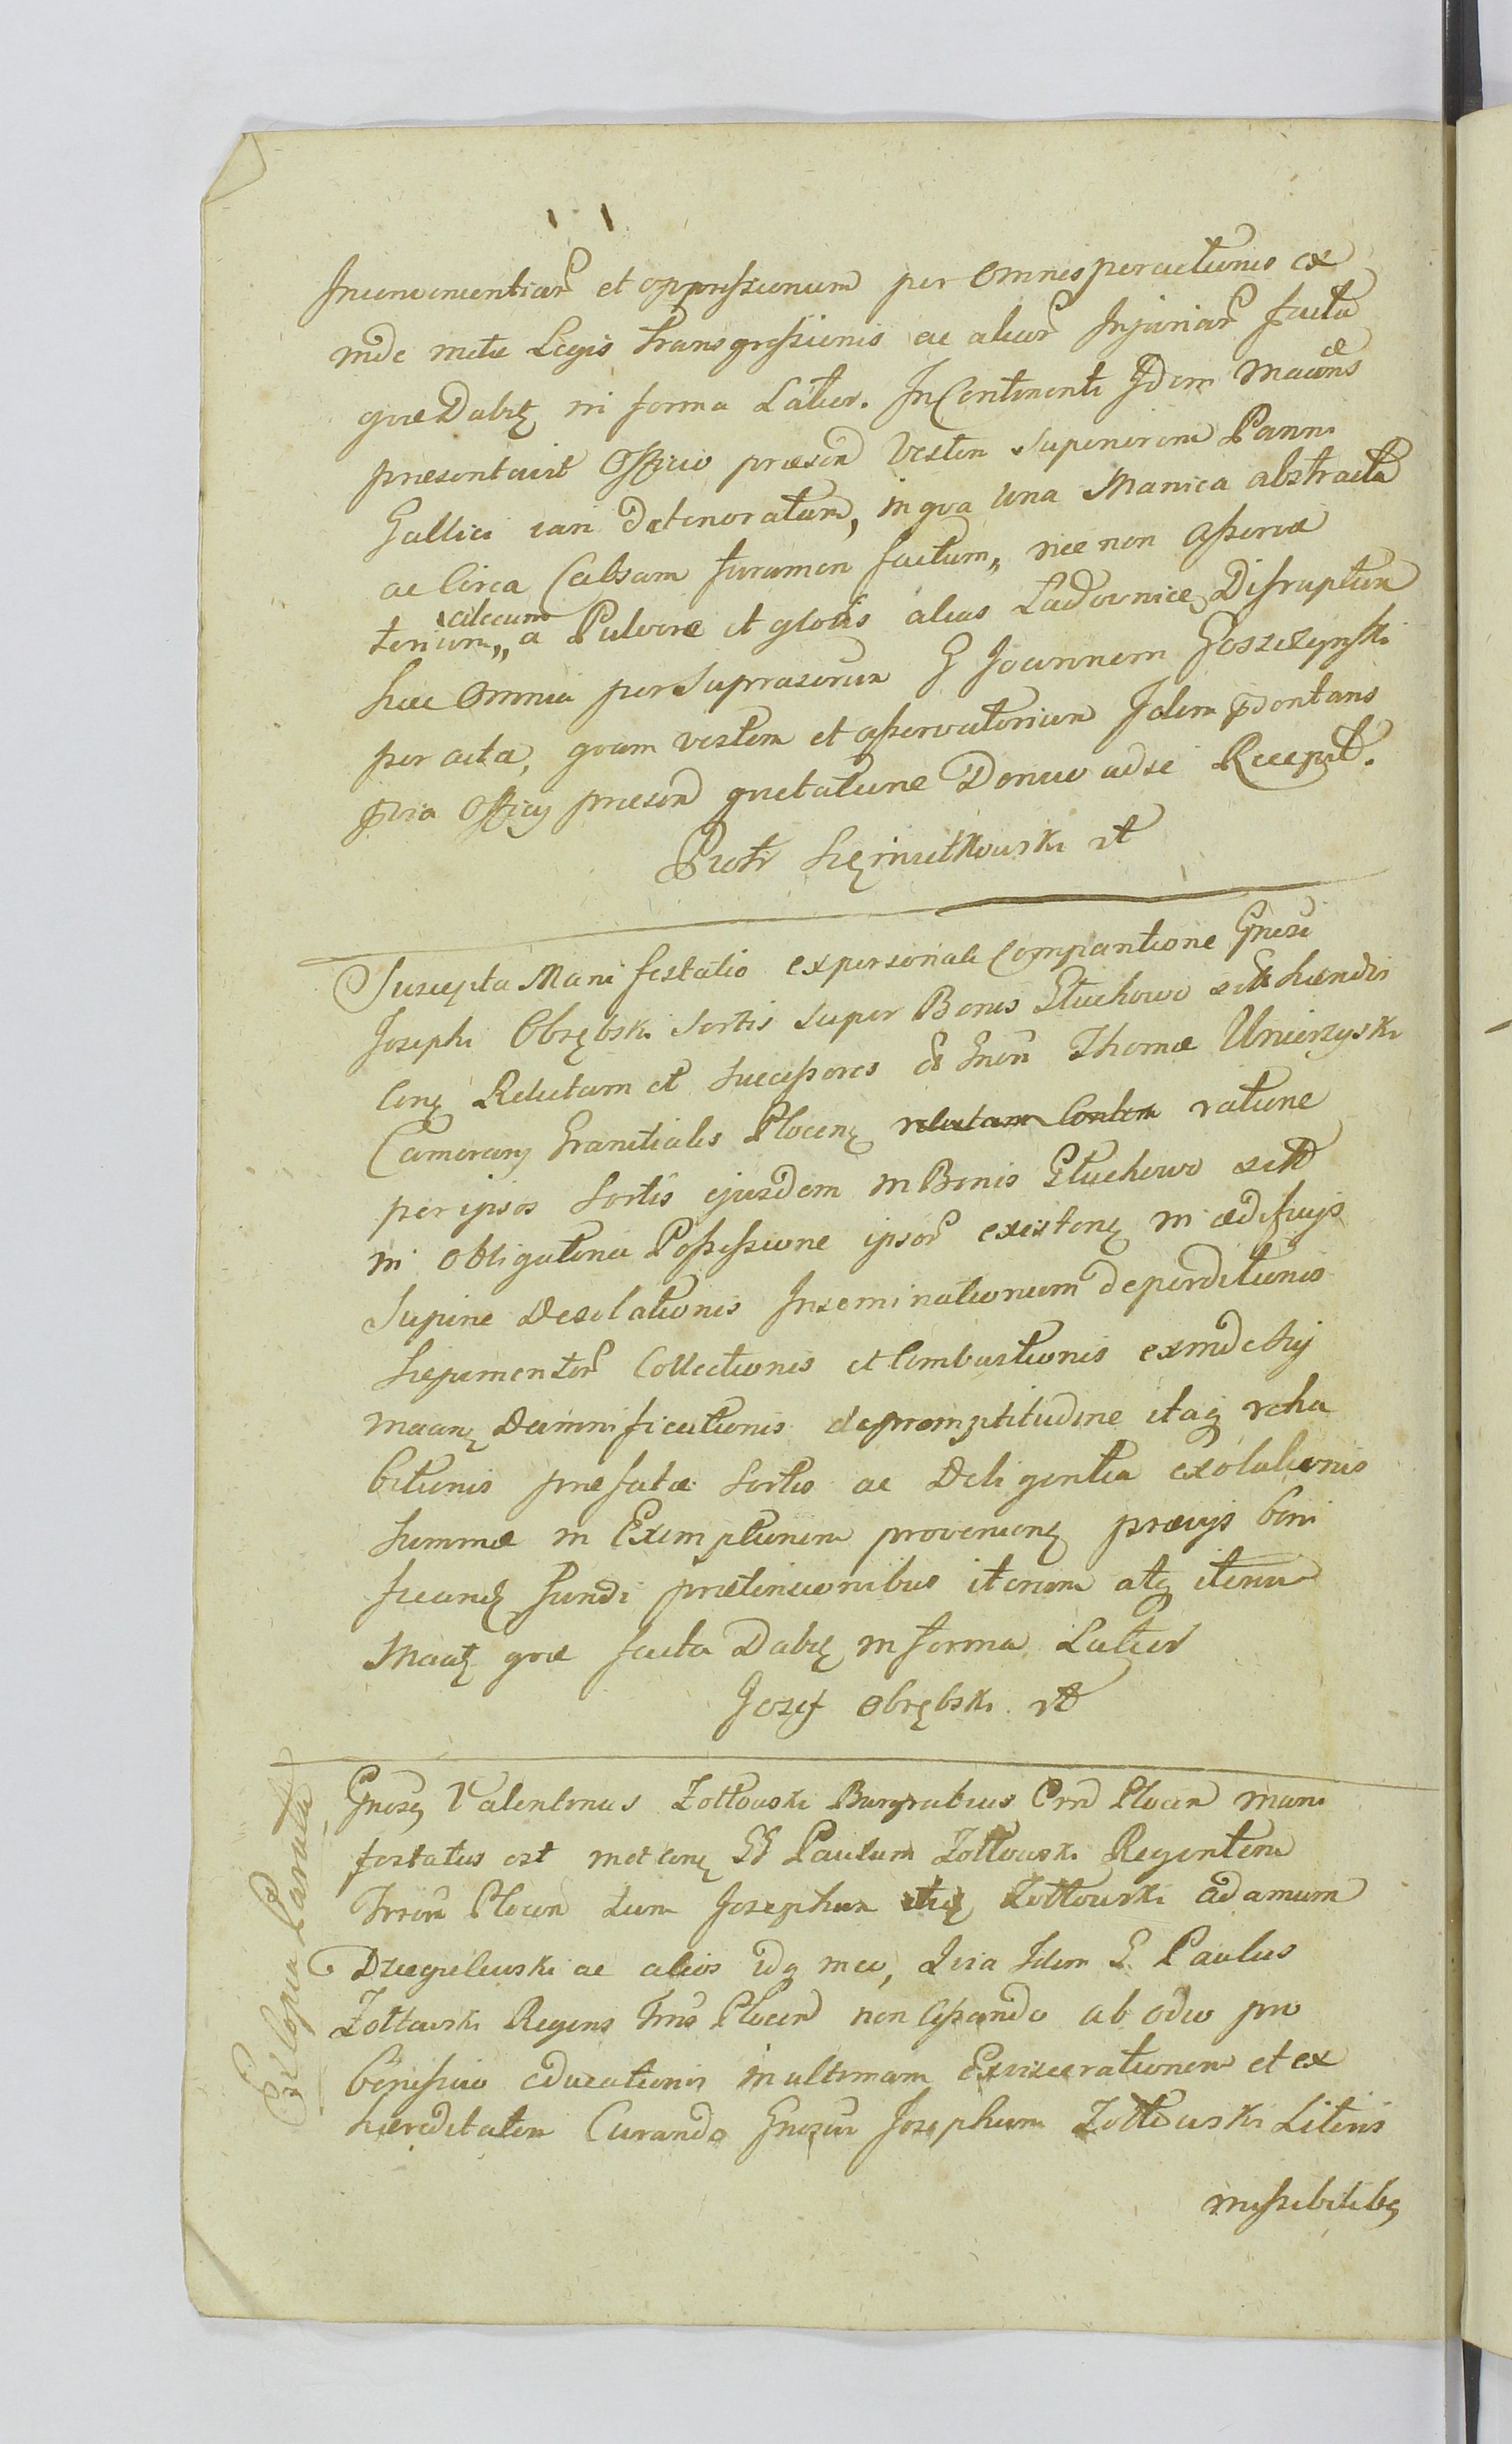 Inconvenientiar et oppressionum per omnes peractiones ex
inde metu Legis transgressionis ac aliar Injuriar facta
quae Dabit in forma Latior. In Continenti Idem Maans
praesentavit Officio praesen Vestem Superiorem Panni
Gallici iam deterioratam, in qua Una Manica abstracta
ac Circa Cabsam foramen factum, nec non asserva
torium alecum a Pulvere et globis alias Ladownice Disruptum
haec Omnia per Supraserum G Joannem Goszczynski
per acta, quam vestem et asservatorium Idem pdentans
pria Officy praesen quietatione Denuo ad se Recepit.
Piotr mp
Suscepta Manifestatio ex personali Comparitione Gnesi
Josephi Obrębski Sortis super Bonis Głuchowo haendis
Conq Relictam et Successores G Gnosi Thomae Unierzyski
Camerary Granitialis Plocenq relictam Contem ratione
per ipsos Sortis ejusdem in Bonis Głuchowo
in obligatoria Possessione ipsor existenq in aedificys
Supine Desolationis Inseminationum deperditionis
Sepimentor Collectionis et Combustionis exinde hij
maanq Damnificationis de promptitudine itaq reha
bitionis praefatae Sortis ac Deligentia exolutionis
Summae in Exemptionem provenienq praevys boni
ficandq fundi praetensionibus iterum atq iterum
Maatq quae facta Dabit in forma Latior
Jozef Obrębski mp
Ex Copia Parata
Gnosq Valentinus Zołtowski Burgrabius Crn Plocen mani
festatus est met conq GG Paulum Zołtowski Regentem
Trron Plocen tum Josephum itiq Zołtowski Adamum
Dziegielewski ac alios idq in eo, Quia Idem G. Paulus
Zołtowski Regens Trris Plocen non Cessando ab odio pro
beneficio educationis in ultimam Exviscerationem et ex
haereditatem Curando Gnosum Josephum Zołtowski Literis
missibilibq